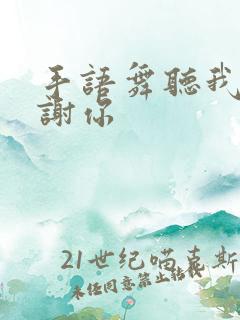 手語舞聽我
謝你
21世纪喵喜斯
未经同意禁止转载